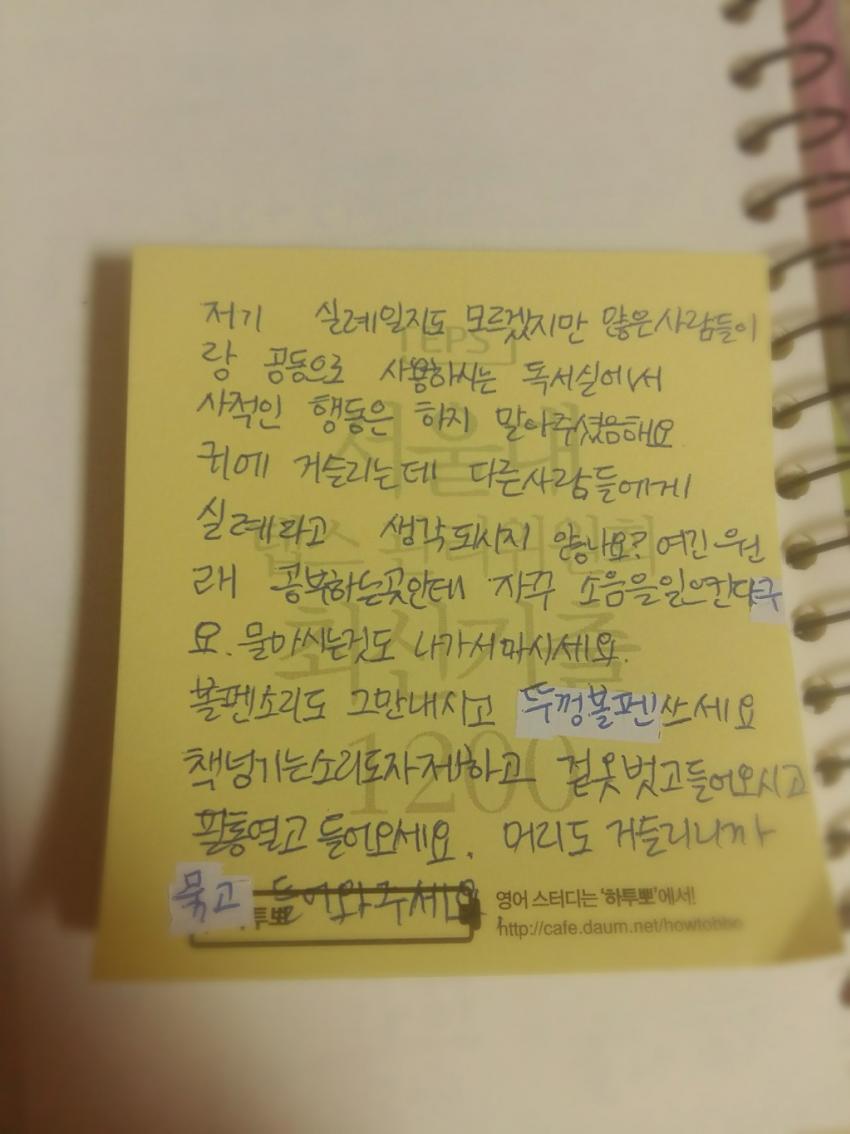 저기 실례일지도 모르겠지만 많은사람들이
랑 공동으로 사용하시는 독서실에서
사적인 행동은 하지 말아주셨음해요
귀에 거슬리는데 다른사람들에게
실례라고 생각되시지 않나요? 여긴 원
래 공부하는곳인데 자꾸 소음을일으킨다구
요. 물마시는것도 나가서마시세요.
볼펜소리도 그만내시고 뚜껑볼펜쓰세요
책넘기는소리도자제하고 겉옷벗고들어오시고
필통열고 들어오세요. 머리도 거슬리니까
묶고 들어와주세요
[EPS]
서울대
텝스관리위원회
최신기출
1200
투뽀
영어 스터디는 '하투뽀'에서!
http://cafe.daum.net/howtobbo